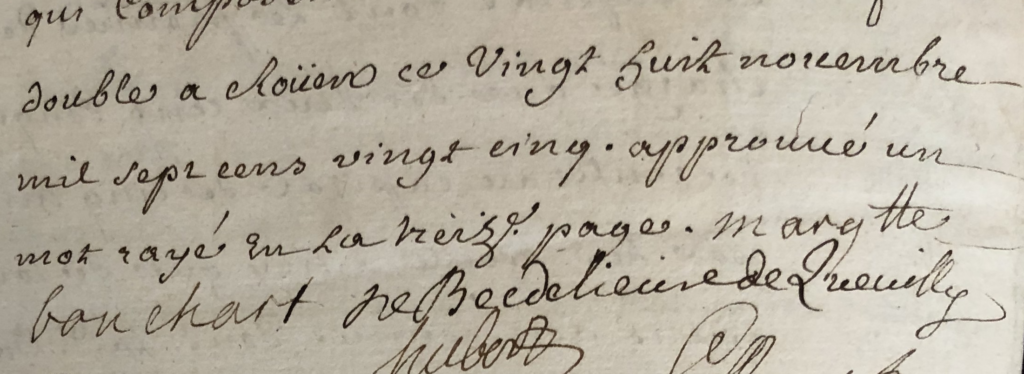 qui
double a Roüen ce vingt huit nouembre
mil sept cens vingt cinq. approuué un
mot rayé en la treiz.e page. margtte
bouchart de Becdelieure de Queuilly
hubert